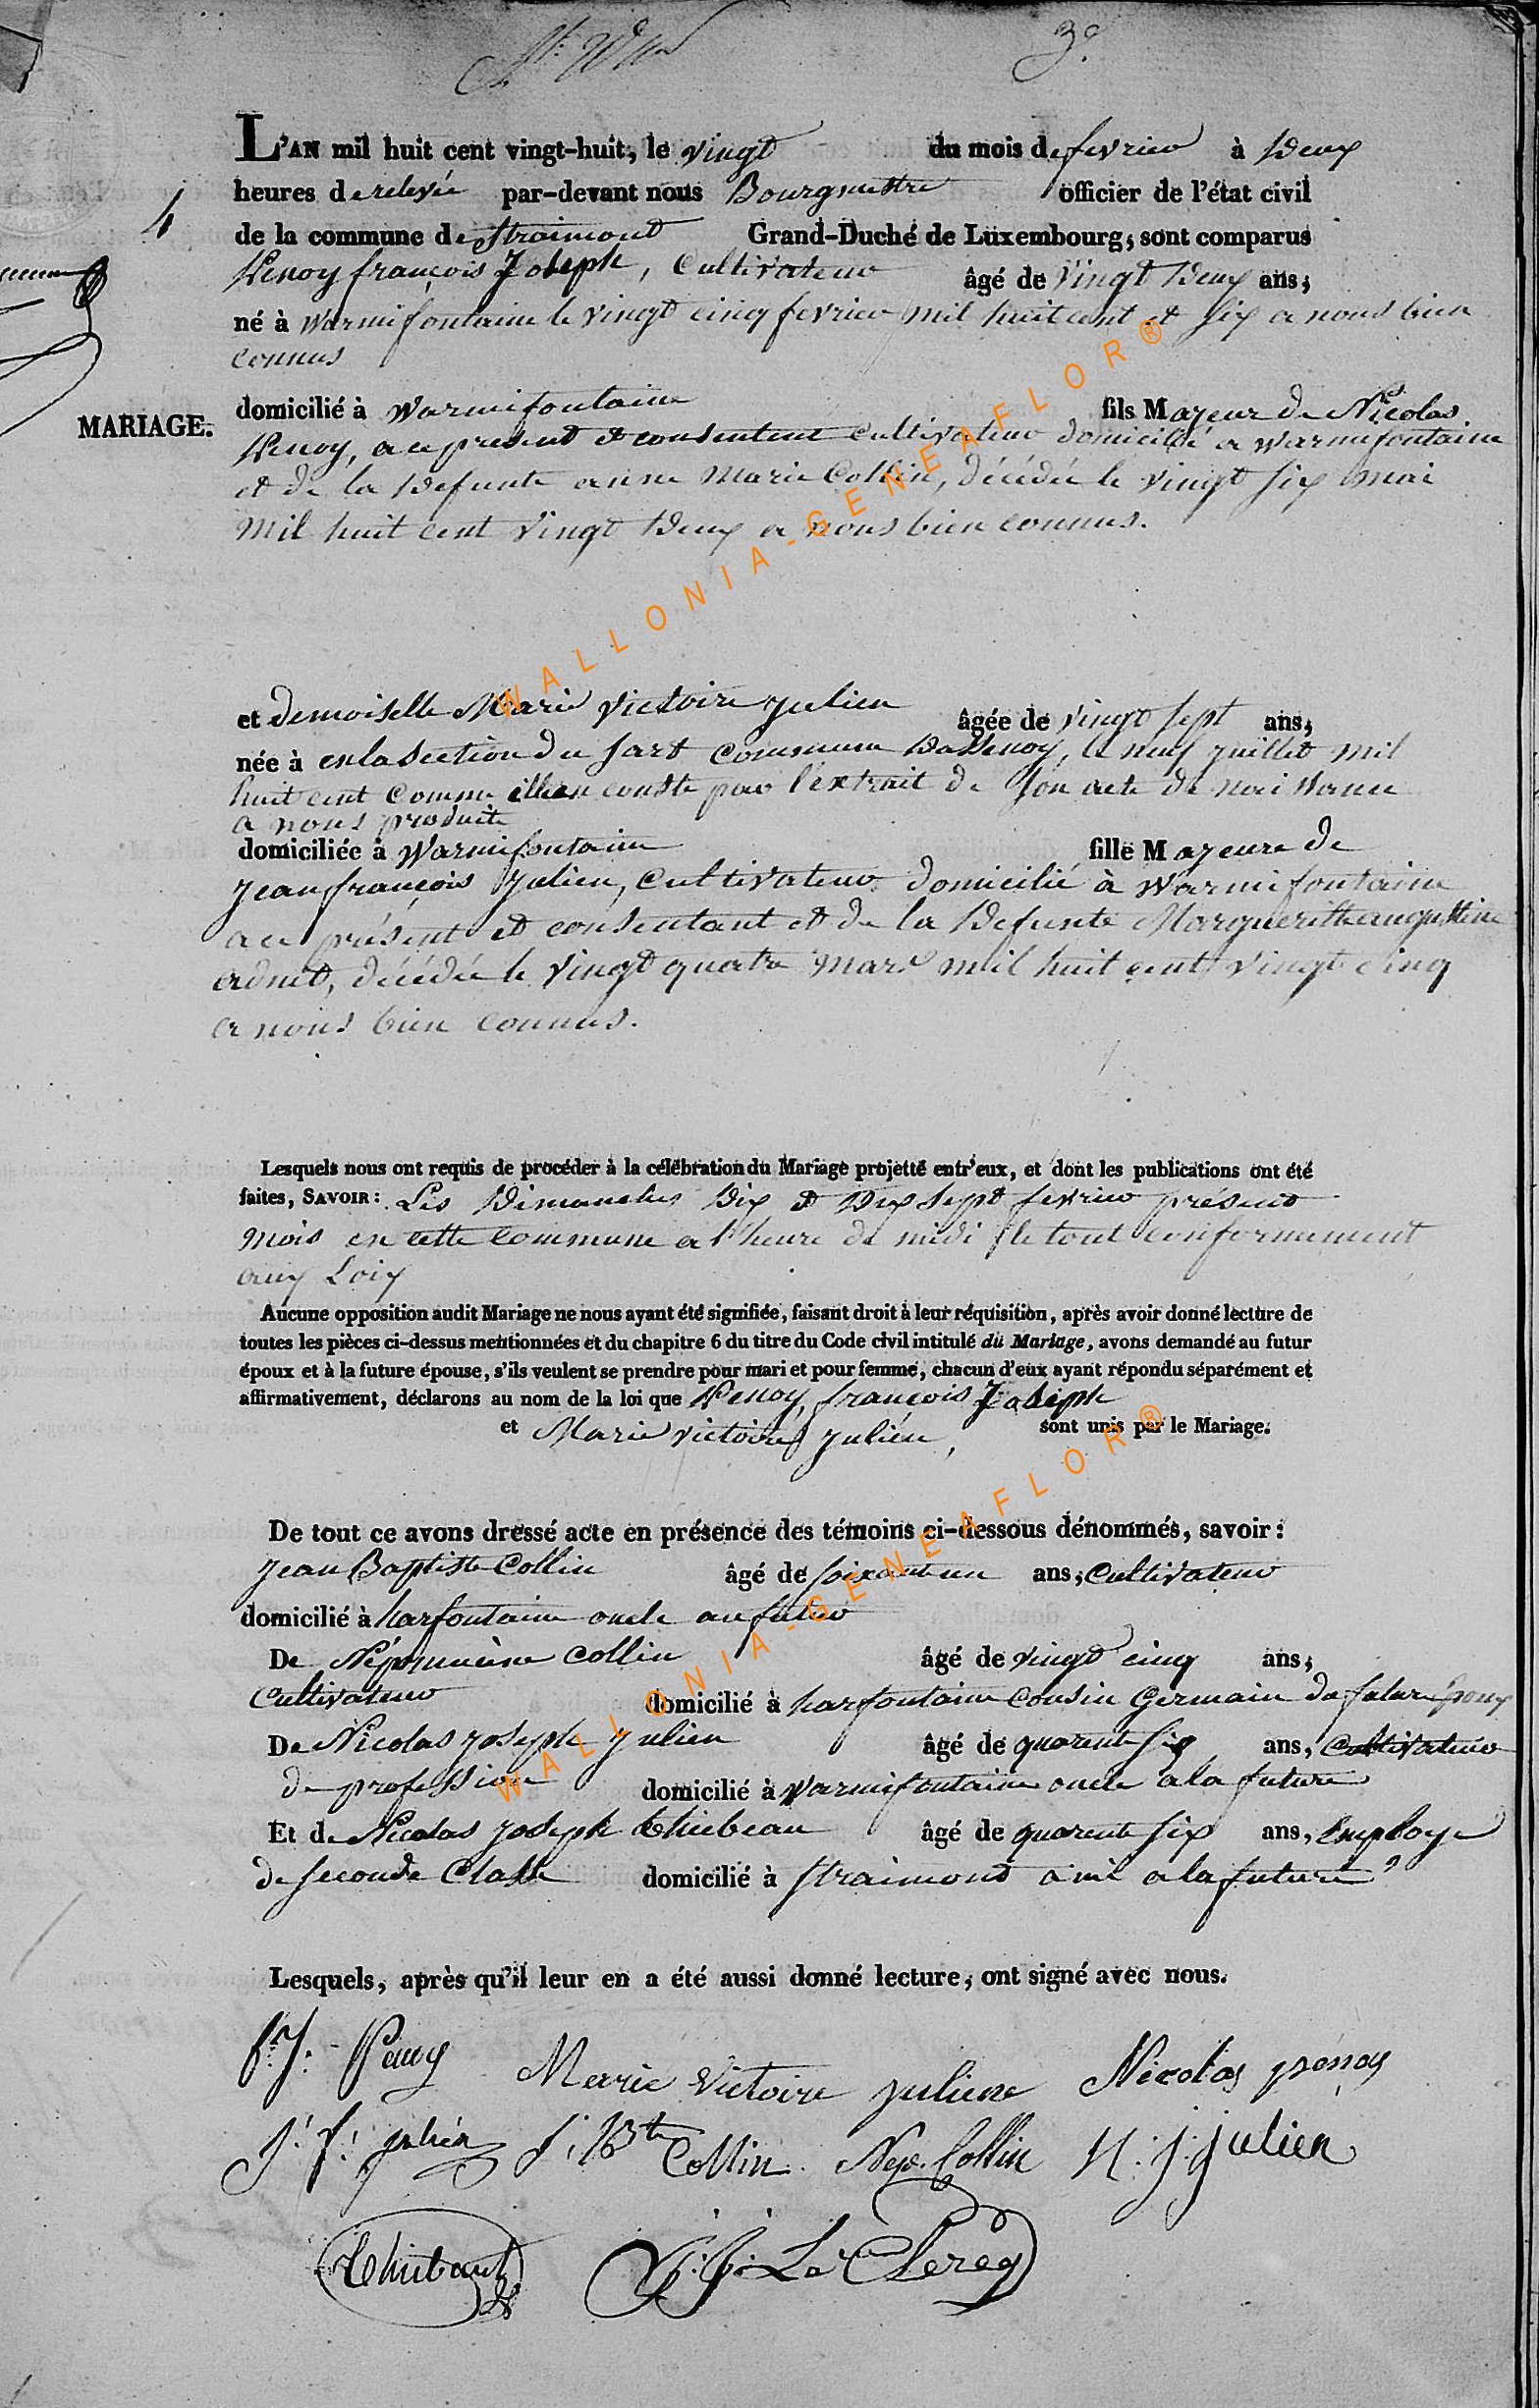 3e
L'AN mil huit cent vingt-huit, le vingt du mois de fevrier à Deux
4
heures de relevée par-devant nous Bourgmestre officier de l'état civil
de la commune de Straimont Grand-Duché de Luxembourg; sont comparus
françois Joseph, Cultivateur âgé de Vingt Deux ans;
né à Warmifontaine le vingt cinq fevrier mil huit cent et six a nous bien
connus
MARIAGE.
domicilié à Warmifontaine fils Majeur de Nicolas
a ce present et consentent cultivateur domicilié a Warmifontaine
et de la Defunte anne Marie Collin, décédée le vingt six mai
Mil huit cent Vingt Deux a nous bien connus.
et Demoiselle Marie Victoire Julien âgée de Vingt sept ans;
née à en la section du Sart commune Dassenoy, le neuf juillet mil
huit cent comme il en conste par l'extrait de son acte de naissance
a nous produite
domiciliée à Warmifontaine fille Majeure de
Jean françois Julien, Cultivateur domicilié à Warmifontaine
a ce présent et consentant et de la Defunte Margueritte augustine
adnet, décédée le Vingt quatre Mars mil huit cent Vingt cinq
a nous bien connus.
Lesquels nous ont requis de procéder à la célébration du Mariage projetté entr'eux, et dont les publications ont été
faites, SAVOIR: Les Dimanches Dix et Dix Sept fevrier présent
mois en cette commune a l'heure de midi le tout conformement
aux Loix
Aucune opposition audit Mariage ne nous ayant été signifiée, faisant droit à leur réquisition, après avoir donné lecture de
toutes les pièces ci-dessus mentionnées et du chapitre 6 du titre du Code civil intitulé du Mariage, avons demandé au futur
époux et à la future épouse, s'ils veulent se prendre pour mari et pour femme, chacun d'eux ayant répondu séparément et
affirmativement, déclarons au nom de la loi que françois Joseph
et Marie Victoire Julien, sont unis par le Mariage.
De tout ce avons dressé acte en présence des témoins ci-dessous dénommés, savoir:
Jean Baptiste Collin âgé de soixante un ans; Cultivateur
domicilié à harfontaine oncle au futur
De Népomucène Collin âgé de vingt cinq ans;
Cultivateur domicilié à harfontaine cousin Germain du futur Epoux
De Nicolas Joseph Julien âgé de quarente six ans, Cultivateur
de profession domicilié à Warmifontaine oncle a la future
Et de Nicolas Joseph Thiebeau âgé de quarente six ans, Employé
de seconde Classe domicilié à Straimont ami a la future
Lesquels, après qu'il leur en a été aussi donné lecture, ont signé avec nous.
f. J. Marie Victoire Juliene Nicolas
J. f. julien J. Bte Collin Nep. Collin N. J. Julien
Thiebaut J. J. Le Clercq
WALLONIA-GENEAFLOR®
WALLONIA-GENEAFLOR®